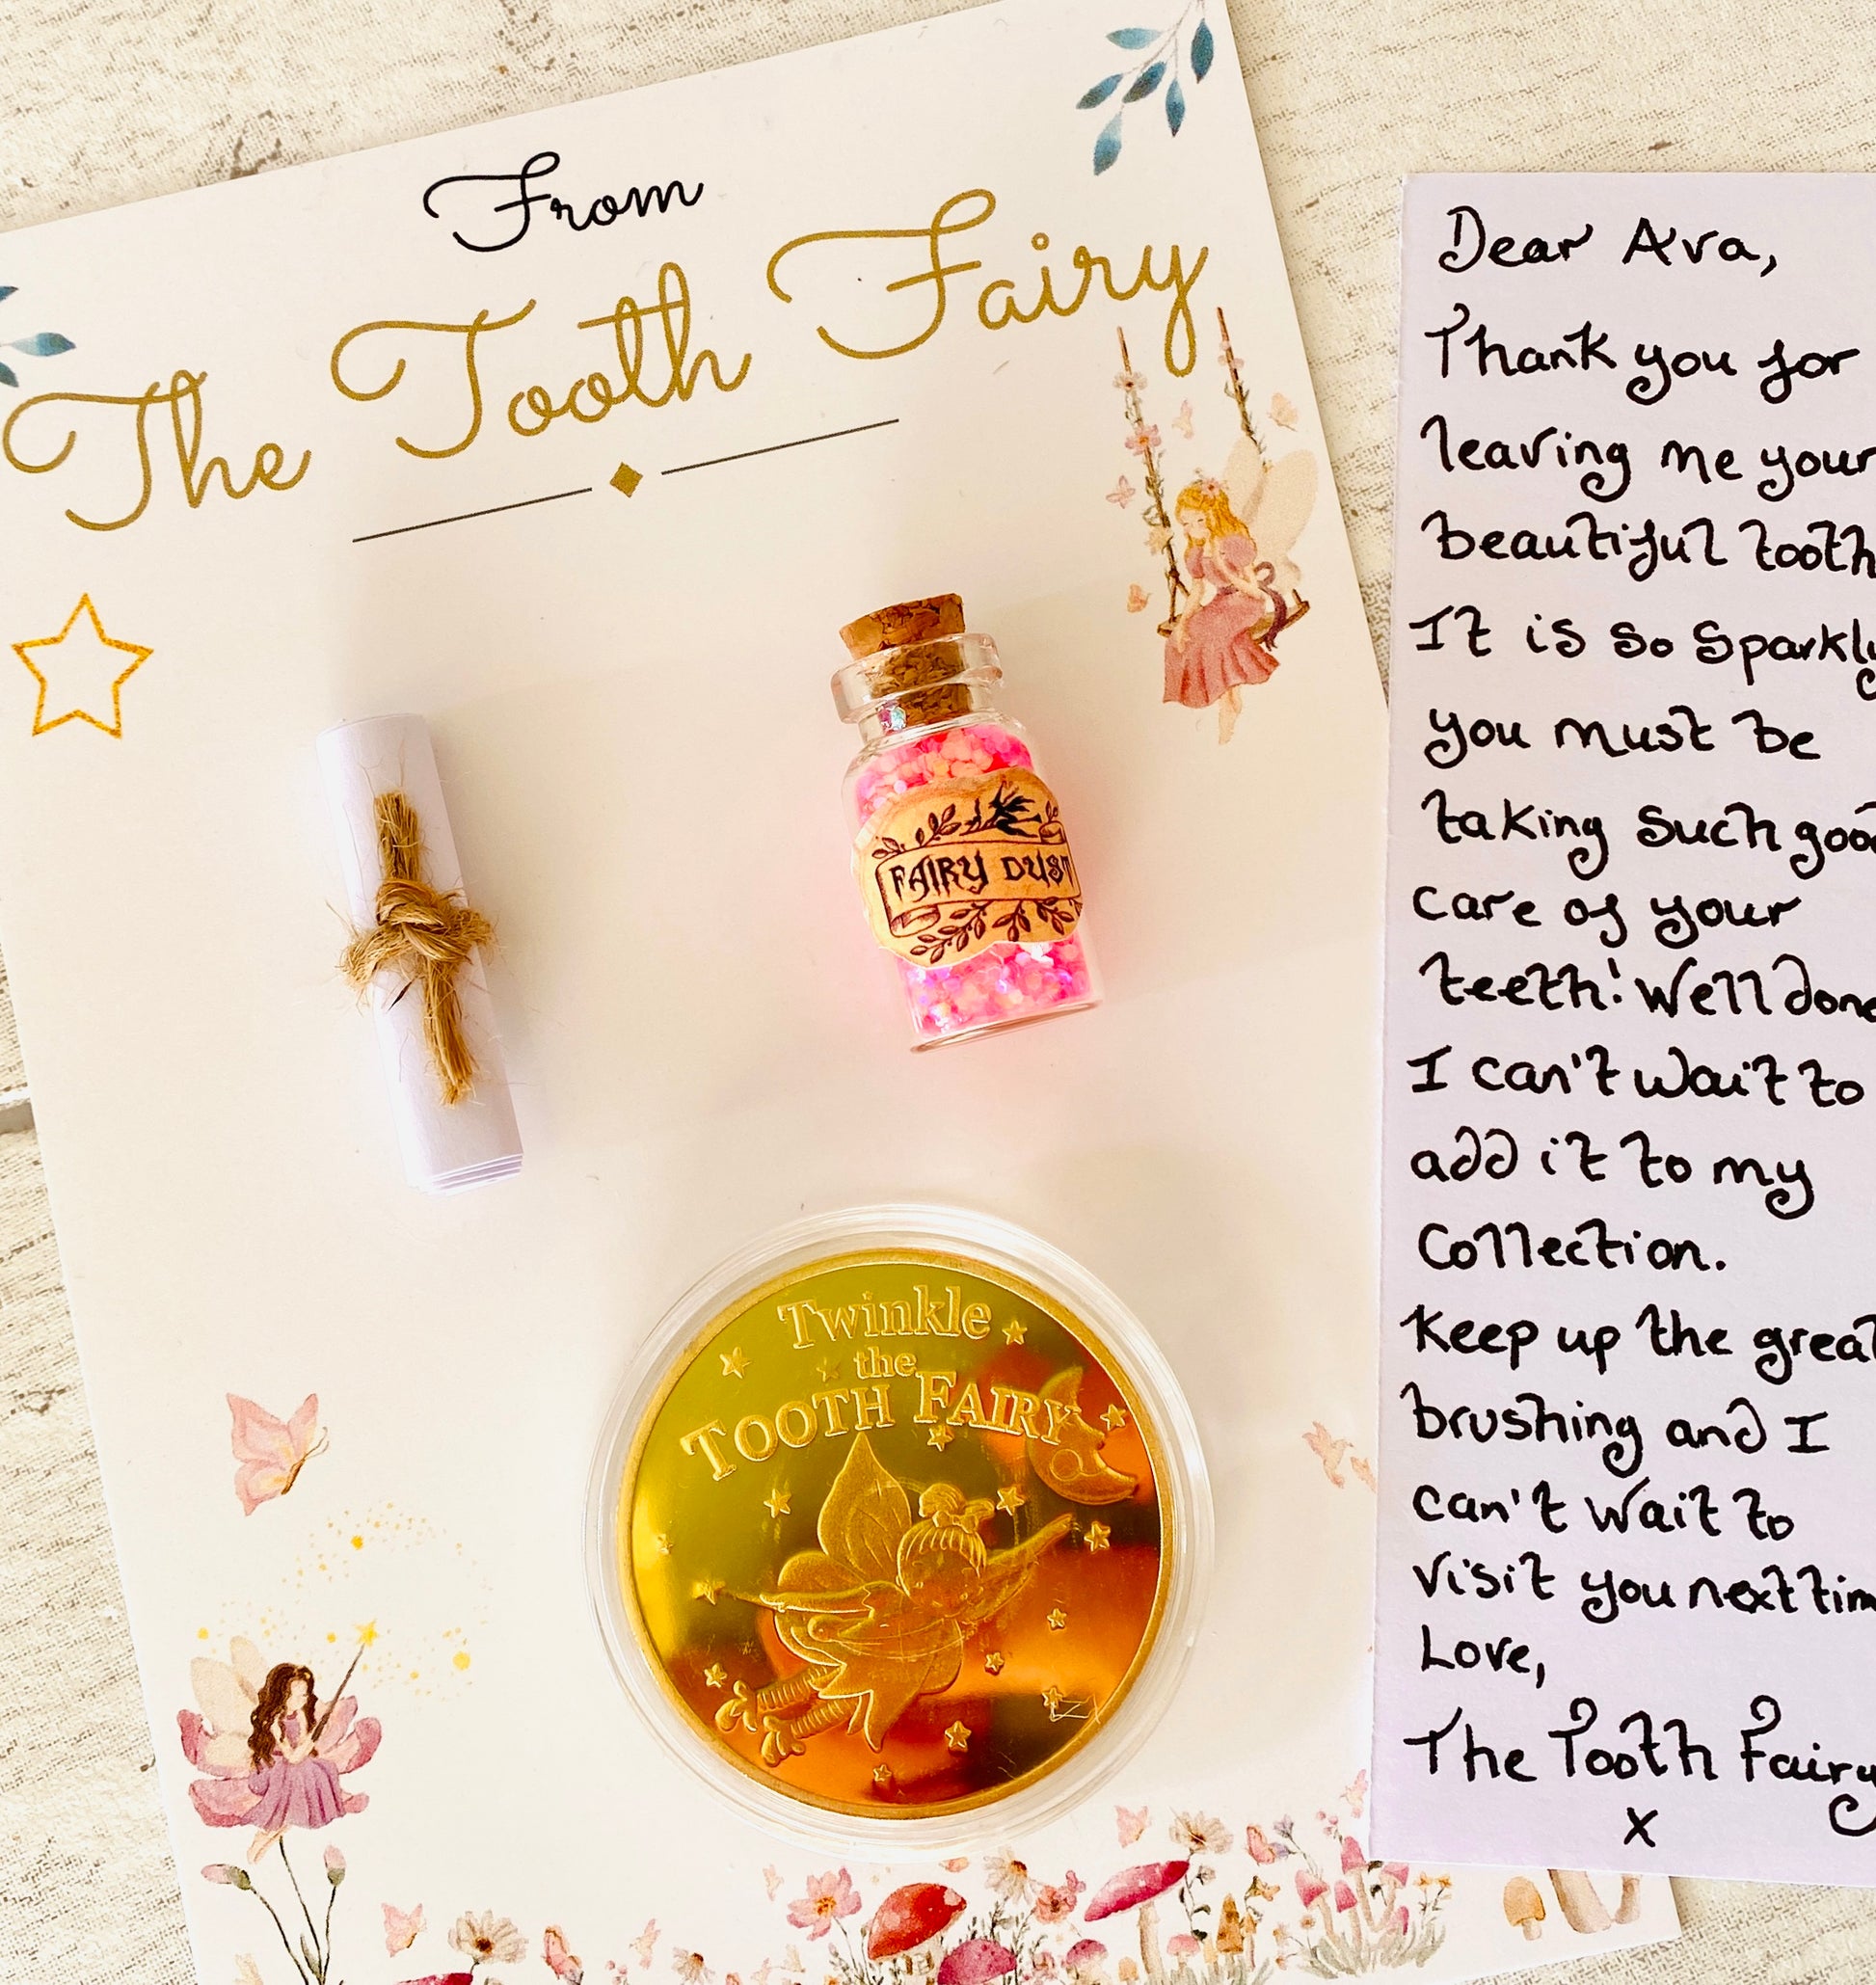 From
The Tooth Fairy
FAIRY DUST
Twinkle
the
TOOTH FAIRY
Dear Ava,
Thank you for
leaving me your
beautiful tooth
It is so sparkly
you must be
taking such good
care of your
teeth! Well done
I can't wait to
add it to my
Collection.
Keep up the great
brushing and I
can't wait to
visit you next tim
Love,
The Tooth Fairy
x